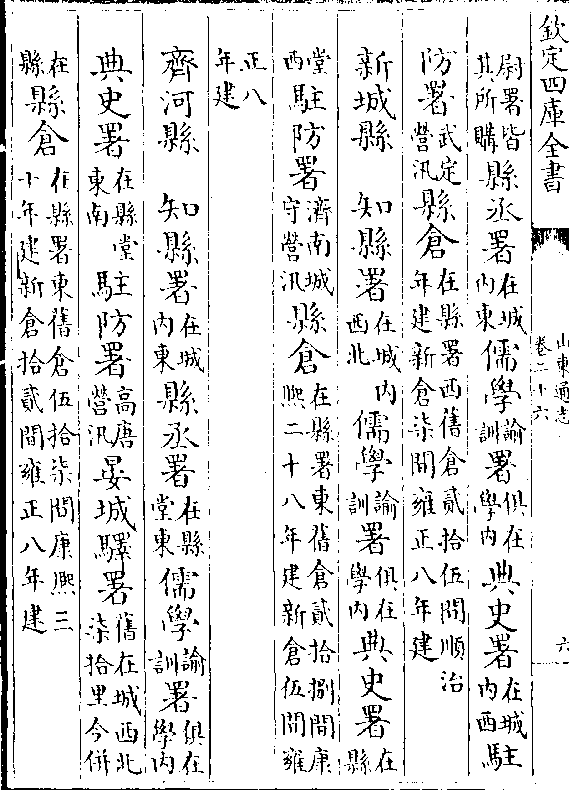 欽定四庫全書 山東通志 卷二十六 六
尉署皆其所購縣丞署在城內東儒學諭訓署俱在學內典史署在城內西駐
防署武定營汛縣倉在縣署西舊倉貳拾伍間順治年建新倉柒間雍正八年建
新城縣 知縣署在城內西北儒學諭訓署俱在學內典史署在縣
堂西駐防署濟南城守營汛縣倉在縣署東舊倉貳拾捌間康熙二十八年建新倉伍間雍
正八年建
齊河縣 知縣署在城內東縣丞署在縣堂東儒學諭訓署俱在學內
典史署在縣堂東南駐防署高唐營汛晏城驛署舊在城西北柒拾里今併
在縣縣倉在縣署東舊倉伍拾柒間康熙三十年建新倉拾貳間雍正八年建